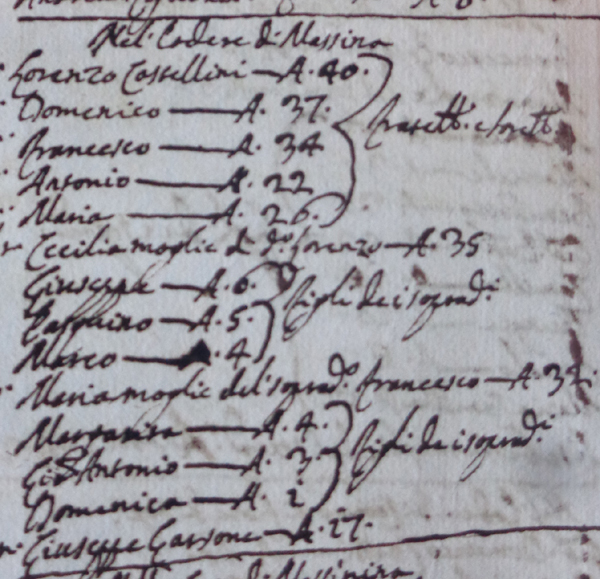 Nel Podere di Massina
Lorenzo Castellini — A. 40.
Domenico — A. 37.
Francesco — A. 34
Antonio — A. 22
Maria — A. 26.
fratelli e sorelli
Cecilia moglie di dº Lorenzo — A. 35
Giuseppe — A. 6.
Pasquino — A. 5.
Marco — A. 4.
figli de i sopradi
Maria moglie del sopradº Francesco — A. 32.
Margarita — A. 4.
Gio Antonio — A. 3.
Domenica — A. 2
figli de i sopradi
Giuseppe Garzone — A. 17.